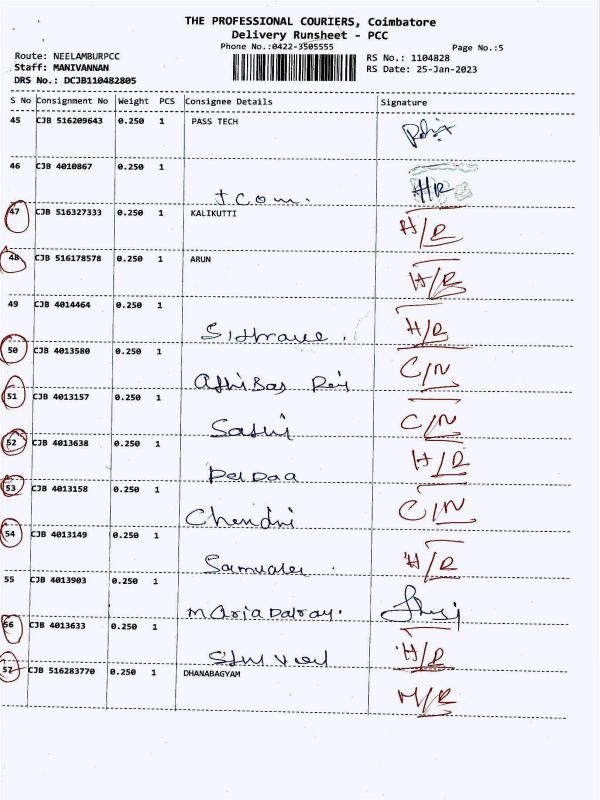 THE PROFESSIONAL COURIERS, Coimbatore
Delivery Runsheet - PCC
Phone No.:0422-3505555 Page No.:5
Route: NEELAMBURPCC RS No.: 1104828
Staff: MANIVANNAN RS Date: 25-Jan-2023
DRS No.: DCJB110482805
S No Consignment No Weight PCS Consignee Details Signature
45 CJB 516209643 0.250 1 PASS TECH
46 CJB 4010867 0.250 1 H/R
J.Com.
47 CJB 516327333 0.250 1 KALIKUTTI H/R
48 CJB 516178578 0.250 1 ARUN H/R
49 CJB 4014464 0.250 1 H/R
50 CJB 4013580 0.250 1 C/N
51 CJB 4013157 0.250 1 C/N
Sathi
52 CJB 4013638 0.250 1 H/R
53 CJB 4013158 0.250 1 C/N
Chendri
54 CJB 4013149 0.250 1 H/R
55 CJB 4013903 0.250 1
Maria
56 CJB 4013633 0.250 1 H/R
57 CJB 516283770 0.250 1 DHANABAGYAM H/R